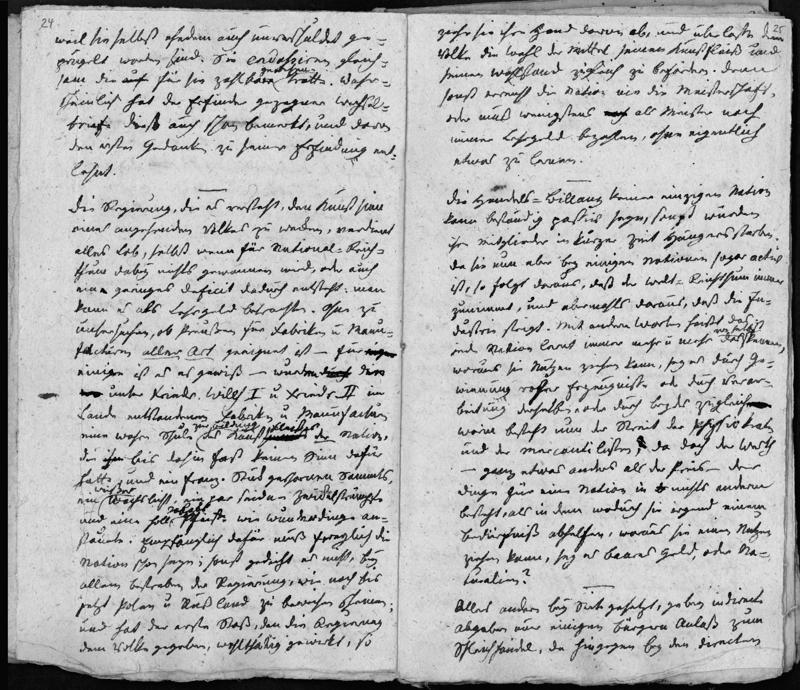 24
weil sie selbst ehedem auch unverschuldet ge-
prügelt worden sind. Sie endossiren gleich-
sam die auf für sie zahlbare Tratte. Wahr-
scheinlich hat der Erfinder gezogener Wechsel-
briefe dieß auch schon bemerkt, und davon
den ersten Gedanken zu seiner Erfindung ent-
lehnt.
Die Regierung, die es versteht, den Kunstsinn
eines angehenden Volkes zu wecken, verdient
alles Lob, selbst wenn für National-Reich-
thum dabey nichts gewonnen wird, oder auch
ein geringes deficit dadurch entsteht: man
kann es als Lehrgeld betrachten. Ohne zu
untersuchen, ob Preußen für Fabriken u Manu-
facturen aller Art geeignet ist – für
einige ist es es gewiß – wurden die
unter Friedr. Willh I u Friedr. II im
Lande entstandenen Fabriken u Manufacturen
eine wahre Schule des Kunstfleißes der Nation,
die bis dahin fast keinen Sinn dafür
hatte, und ein franz. Sammt,
ein Wachslicht, ein par seidene Zwickelstrümpfe
und eine wie Wunderdinge an-
staunte. Empfänglich dafür muß freylich die
Nation schon seyn; sonst gedeiht es nicht, bey
allem bestreben der Regierung, wie noch bis
jetzt Polen u Rußland zu beweisen scheinen;
und hat der erste Stoß, den die Regierung
dem Volke gegeben, wohlthätig gewirkt, so
25
ziehe sie ihre Hand davon ab, und überlasse dem
Volke die Wahl der Mittel seinen Kunstfleiß und
seinen Wohlstand zugleich zu befördern. Denn
sonst erreicht die Nation nie die Meisterschaft,
oder muß wenigstens als Meister noch
immer Lehrgeld bezahlen, ohne eigentlich
etwas zu lernen.
Die Handels-Billanz keiner einzigen Nation
kann beständig passiv seyn, sonst würden
ihre Mitglieder in kurzer Zeit Hungers sterben,
da sie nun aber bey einigen Nationen sogar activ
ist, so folgt daraus, daß der Welt-Reichthum immer
zunimmt, und abermahls daraus, daß die In-
dustrie steigt. Mit andern Worten heißt das
jede Nation lernt immer mehr u mehr das kennen,
woraus sie Nutzen ziehen kann, sey es durch Ge-
winnung roher Erzeugnisse oder durch Verar-
beitung derselben oder durch beydes zugleich
worin besteht nun der Streit der Physiokraten
und der Mercantilisten, da doch der Werth
– ganz etwas anders als der Preis – der
Dinge für eine Nation in nichts anderm
besteht, als in dem wodurch sie irgend einem
Bedürfniß abhelfen, woraus sie einen Nutzen
ziehen kann, sey es baares Geld, oder Na-
turalien?
Alles andere bey Seite gesetzt, geben indirecte
Abgaben nur einigen Bürgern Anlaß zum
Schleichhandel, da hingegen bey den directen